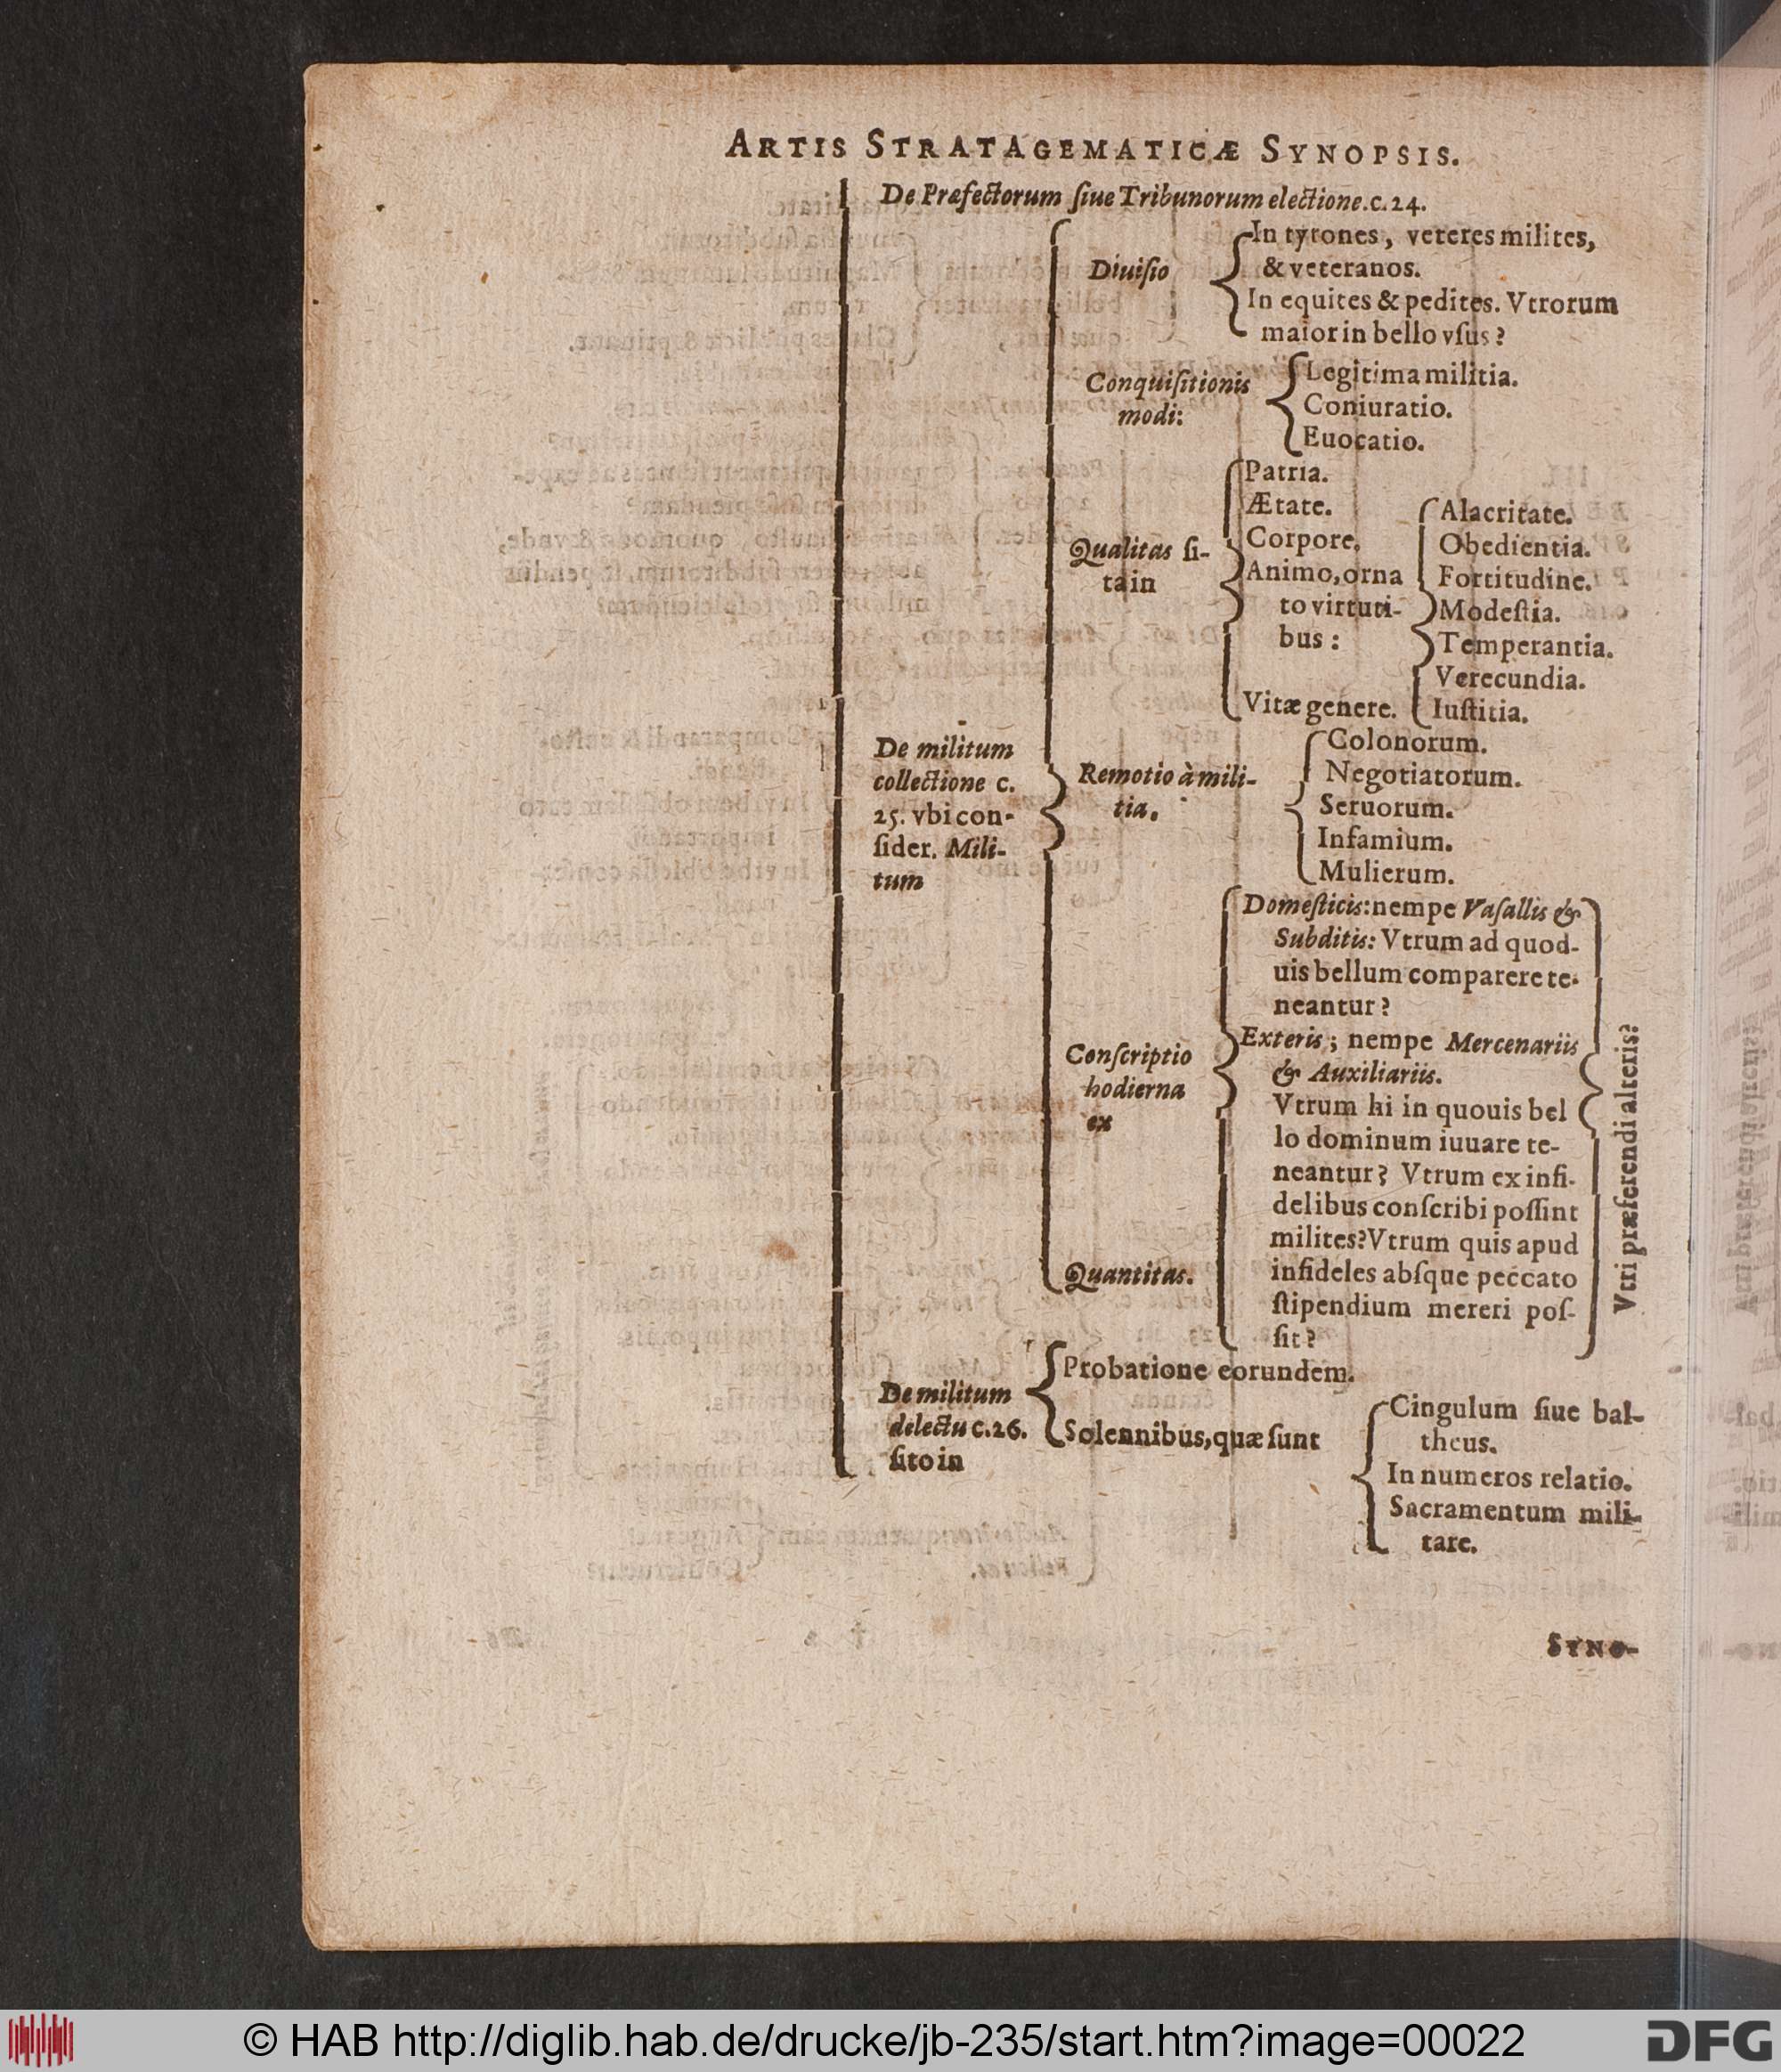 ARTIS STRATAGEMATICÆ SYNOPSIS.
De Præfectorum ſiue Tribunorum electione.c.24.
Diuiſio
In tyrones, veteres milites,
& veteranos.
In equites & pedites. Vtrorum
maior in bello vſus?
Conquiſitionis
modi:
Legitima militia.
Coniuratio.
Euocatio.
Qualitas ſi-
ta in
Patria.
Ætate.
Corpore,
Animo, orna
to virtuti-
bus:
Vitæ genere.
Alacritate.
Obedientia.
Fortitudine.
Modeſtia.
Temperantia.
Verecundia.
Iuſtitia.
De militum
collectione c.
25. vbi con-
ſider. Mili-
tum
Remotio à mili-
tia.
Colonorum.
Negotiatorum.
Seruorum.
Infamium.
Mulierum.
Conſcriptio
hodierna
ex
Domeſticis: nempe Vaſallis &
Subditis: Vtrum ad quod-
uis bellum comparere te-
neantur?
Exteris; nempe Mercenariis
& Auxiliariis.
Vtrum hi in quouis bel
lo dominum iuuare te-
neantur? Vtrum ex infi-
delibus conſcribi poſſint
milites? Vtrum quis apud
infideles abſque peccato
ſtipendium mereri poſ-
ſit?
Vtri præferendi alteris?
Quantitas.
De militum
delectu c.26.
ſito in
Probatione eorundem.
Solennibus, quæ ſunt
Cingulum ſiue bal-
theus.
In numeros relatio.
Sacramentum mili-
tare.
SYNO-
© HAB http://diglib.hab.de/drucke/jb-235/start.htm?image=00022
DFG